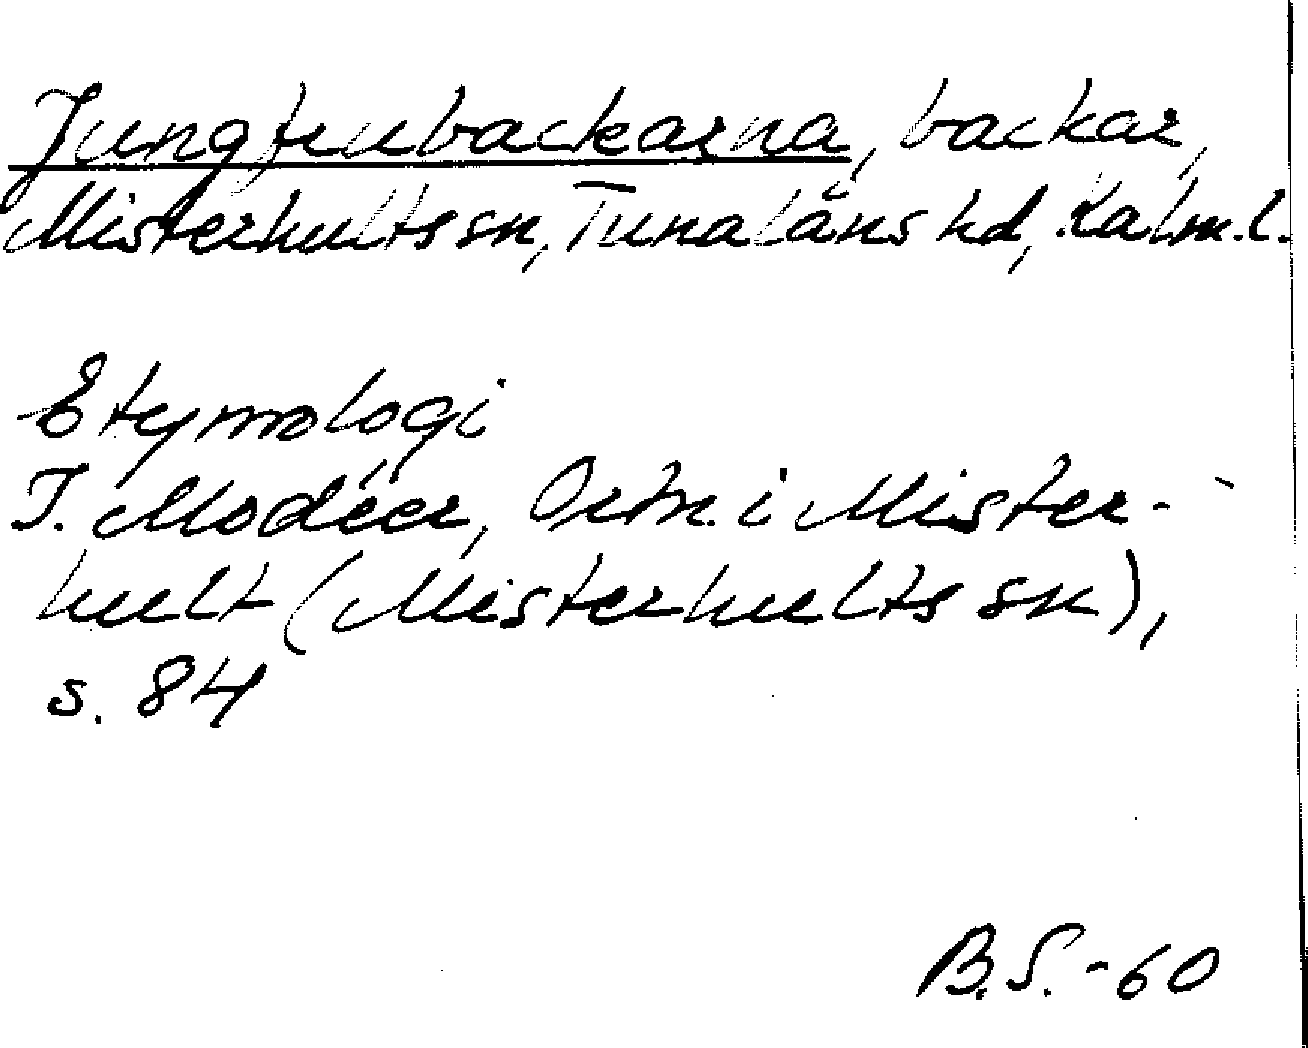 Jungfrubackarna, backar,
Misterhults sn, Tunaläns hd, Kalm. l.
Etymologi
I. Modéer, Ortn. i Mister-
hult (Misterhults sn),
s. 84
B.S. -60